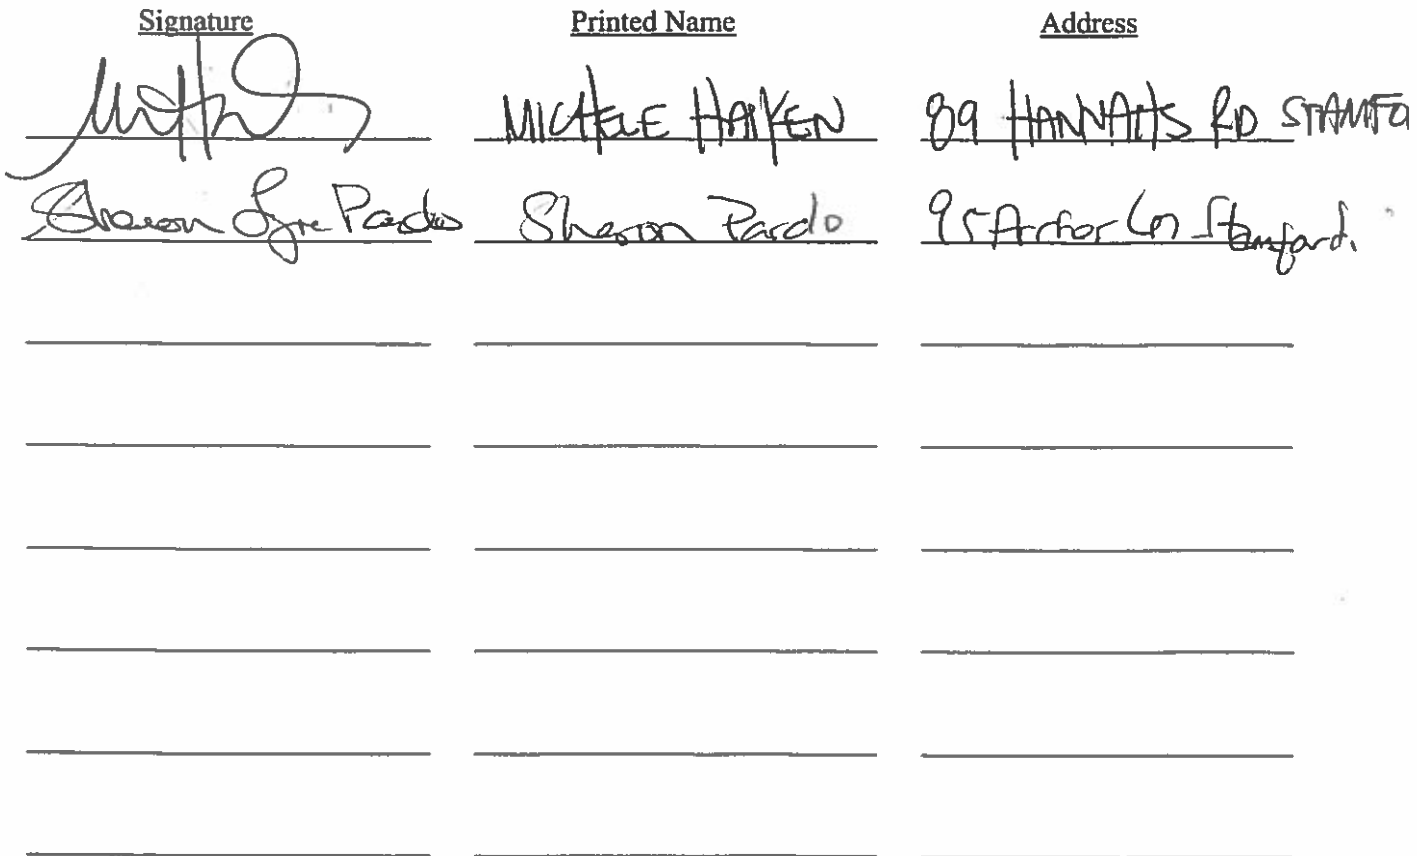 Signature Printed Name Address
MICHELE HAIKEN 89 HANNAHS RD STAMFO
Sharon Pardo Sharon Pardo 95 Stamford.